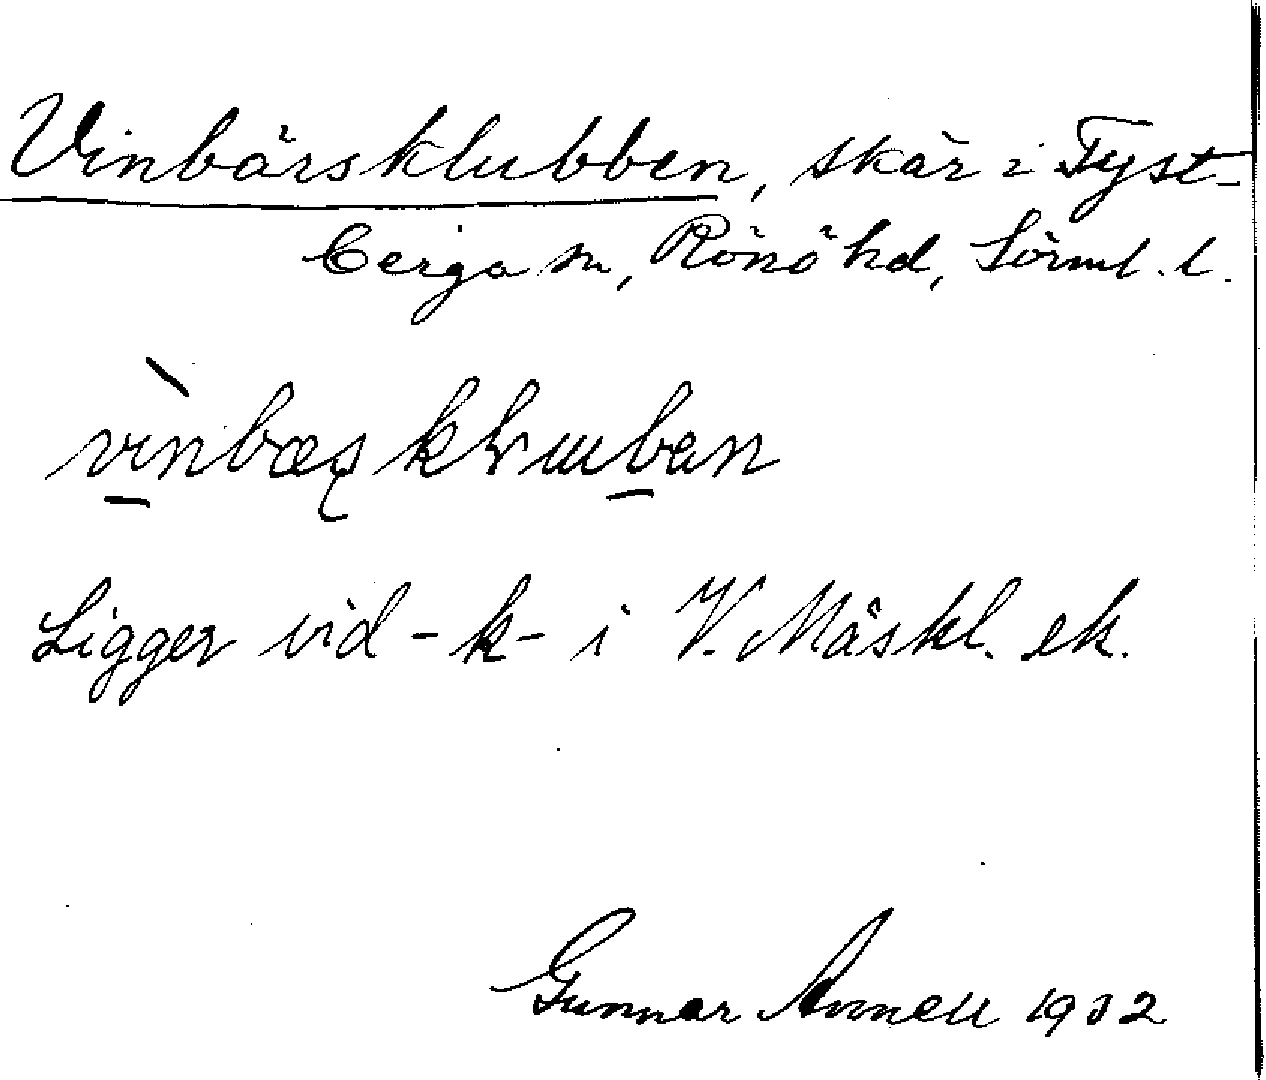 Vinbärsklubben, skär i Tyst-
berga sn, Rönö hd, Sörml. l.
Ligger vid -k- i V. Mäskl. ek.
Gunnar Annell 1932